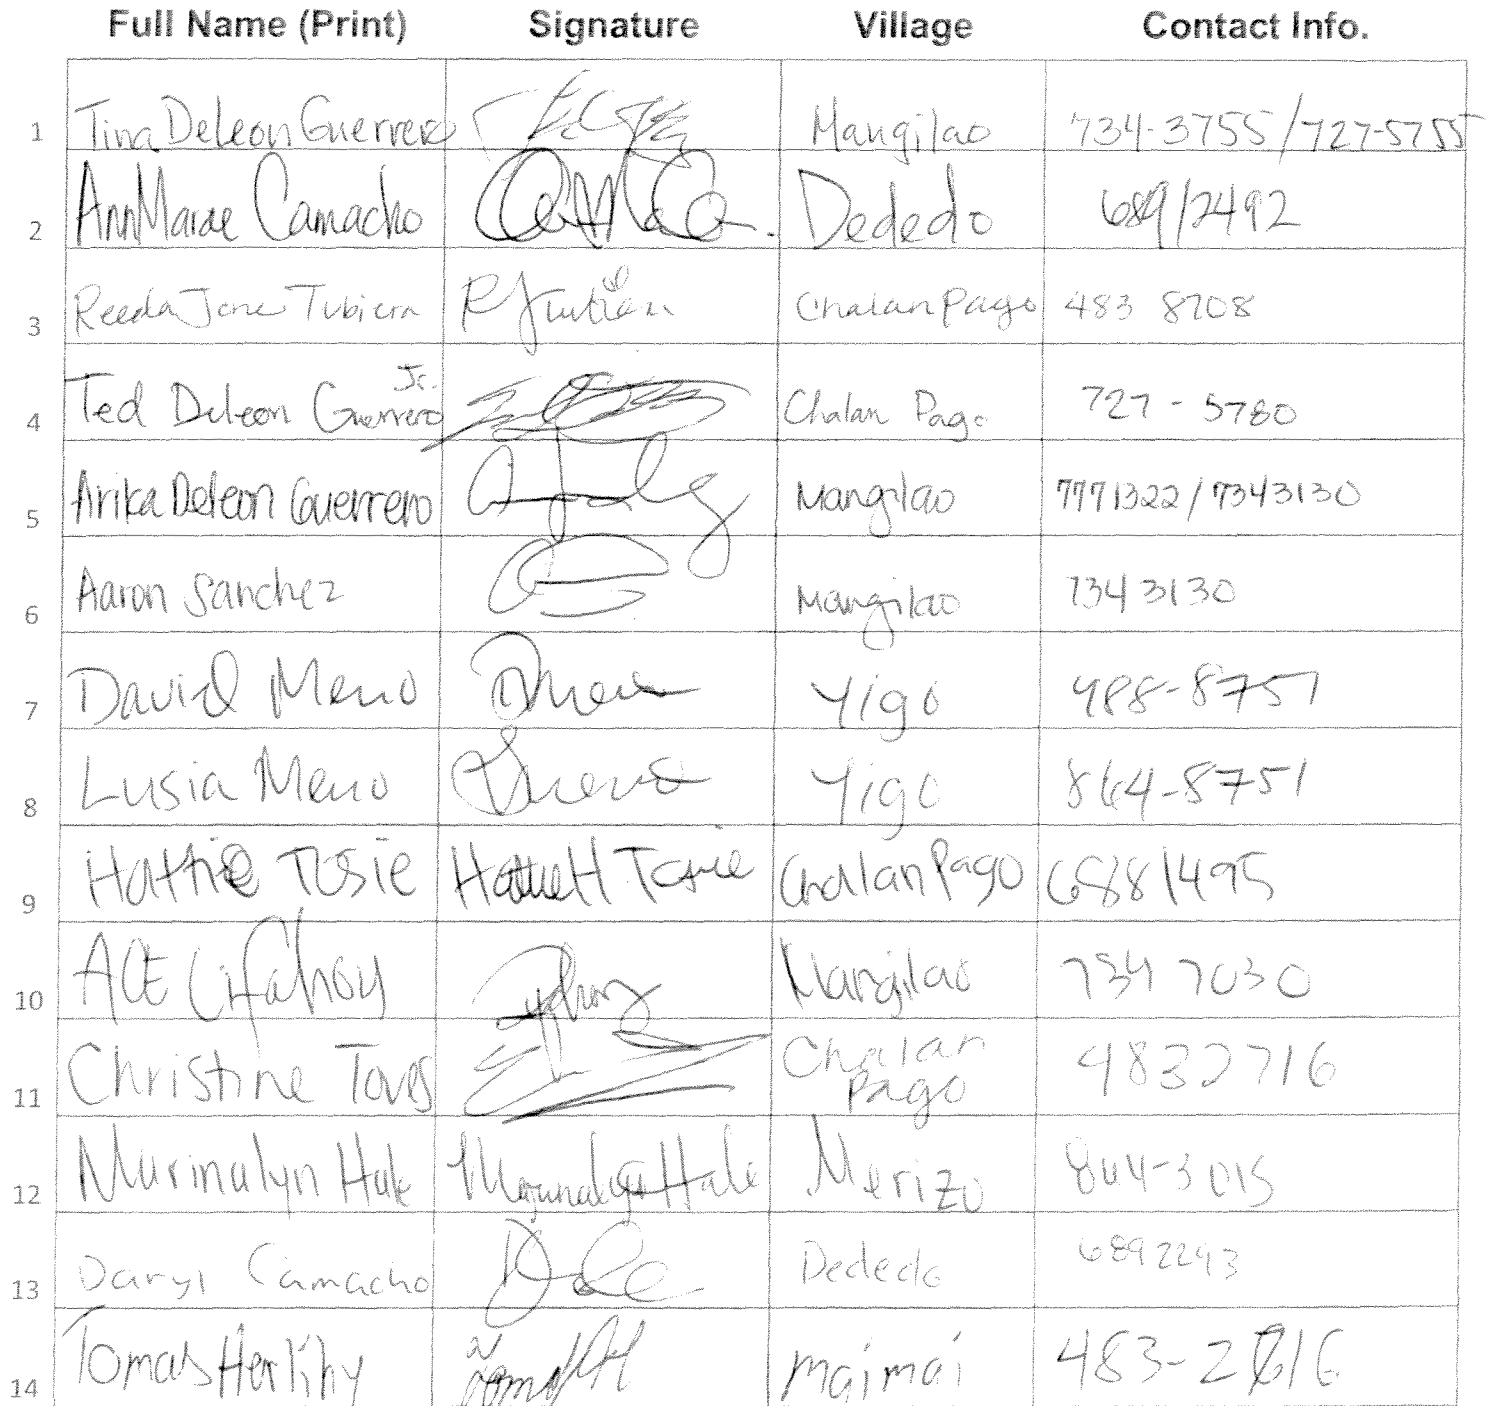 Full Name (Print) Signature Village Contact Info.
1 Tina DeLeon Guerrero Mangilao 734-3755/727-5755
2 AnnMarae Camacho Dededo 689/2492
3 Reeda Jane Tubiera Chalan Pago 483 8708
4 Ted DeLeon Guerrero Jr. Chalan Pago 727-5780
5 Arika Deleon Guerrero Mangilao 7771322/7343130
6 Aaron Sanchez Mangilao 7343130
7 David Meno Yigo 988-8751
8 Lusia Meno Yigo 864-8751
9 Hattie Tosie Hattie H Tosie Chalan Pago 6881495
10 Mangilao 734 7030
11 Christine Toves Chalan
Pago 4832716
12 Marinalyn Hale Marinalyn Hale Merizo 864-3015
13 Daryl Camacho Dededo 6892293
14 Tomas Herlihy maimai 483-2816